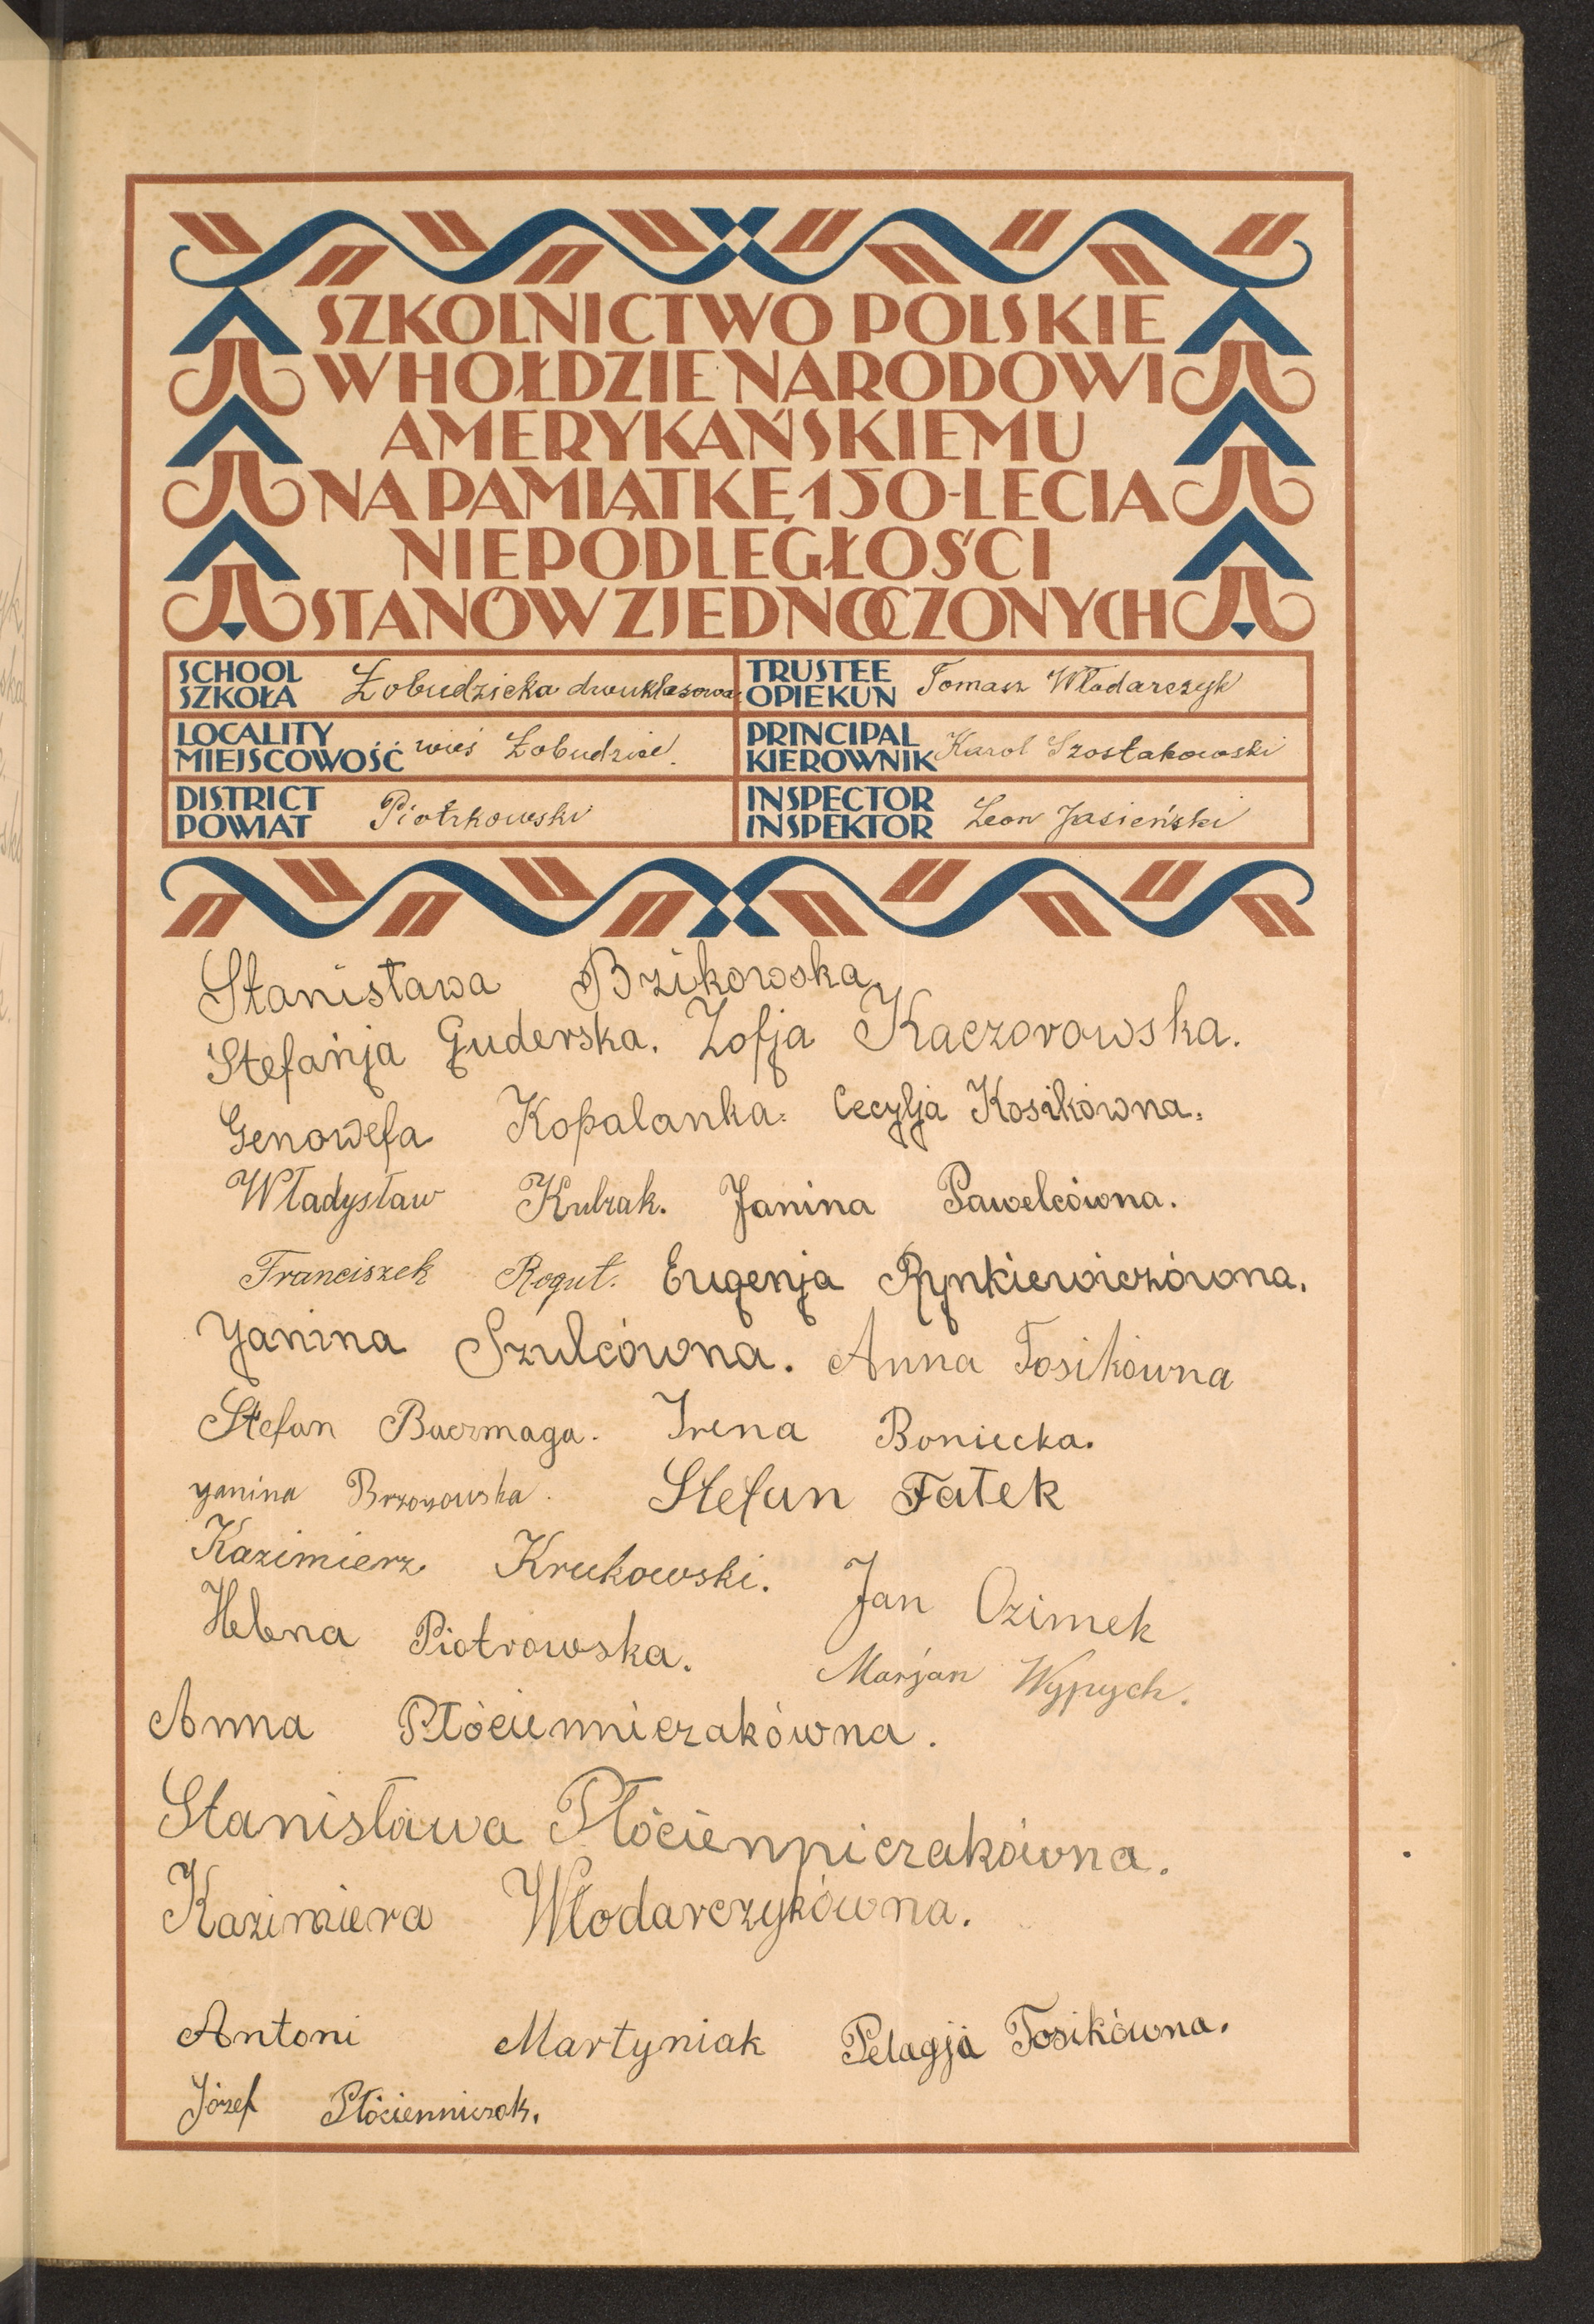 SZKOLNICTWO POLSKIE
W HOŁDZIE NARODOWI
AMERYKAŃSKIEMU
NA PAMIĄTKĘ 150-LECIA
NIEPODLEGŁOŚCI
STANÓW ZJEDNOCZONYCH
SCHOOL
SZKOŁA Łobudzicka dwuklasowa
TRUSTEE
OPIEKUN Tomasz Włodarczyk
LOCALITY
MIEJSCOWOŚĆ wieś Łobudzice.
PRINCIPAL
KIEROWNIK Karol Szostakowski
DISTRICT
POWIAT Piotrkowski
INSPECTOR
INSPEKTOR Leon Jasieński
Stanisława Bzikowska.
Stefańja Guderska. Zofja Kaczorowska.
Genowefa Kopalanka. Cecylja Kosikówna.
Władysław Kubzak. Janina Pawelcówna.
Franciszek Rogut. Eugenja Rynkiewiczówna.
Janina Szulcówna. Anna Tosikówna
Stefan Baczmaga. Irena Boniecka.
Janina Brzozowska. Stefan Fałek
Kazimierz Krukowski. Jan Ozimek
Helena Piotrowska. Marjan Wypych.
Anna Płócienniczakówna.
Stanisława Płócienniczakówna.
Kazimiera Włodarczykówna.
Antoni Martyniak Pelagja Tosikówna.
Józef Płócienniczak.